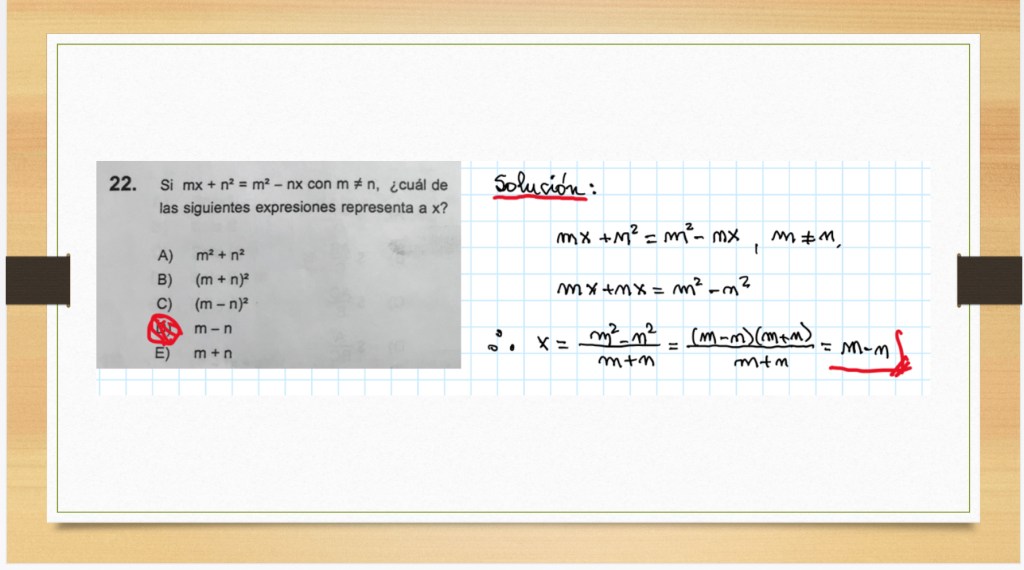 22. Si mx + n² = m² – nx con m ≠ n, ¿cuál de
las siguientes expresiones representa a x?
A) m² + n²
B) (m + n)²
C) (m – n)²
m – n
E) m + n
Solución:
mx + n² = m² - nx , m ≠ n,
mx + nx = m² - n²
∴ x = (m² - n²)/(m+n) = ((m-n)(m+n))/(m+n) = m-n